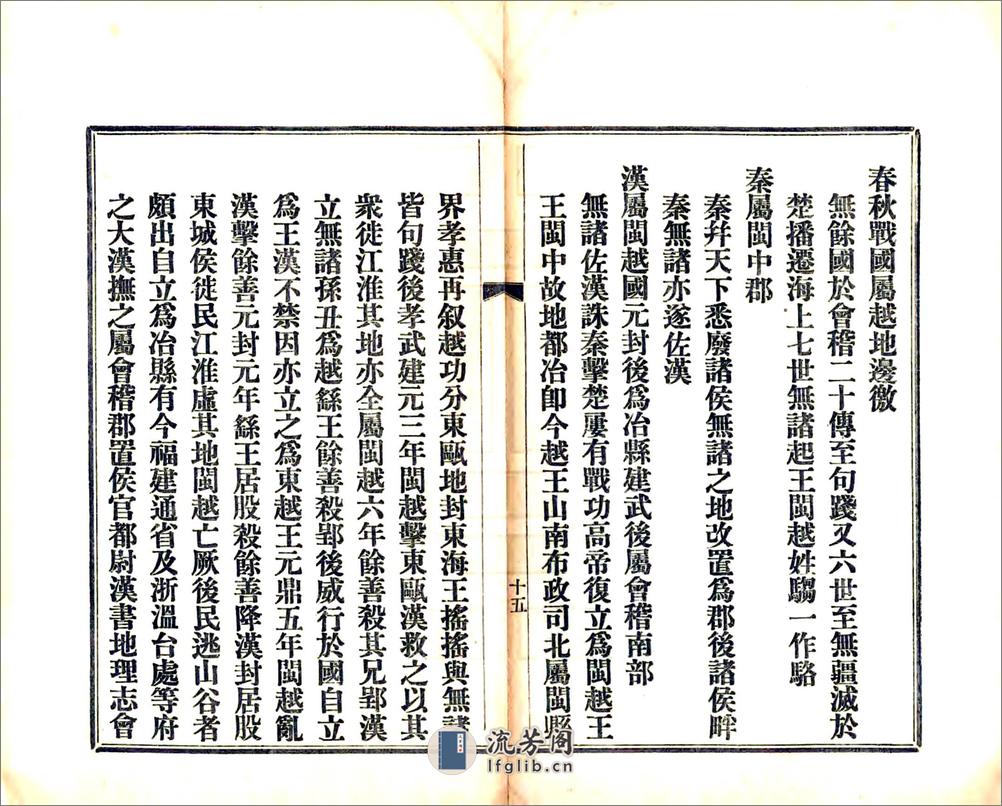 春秋戰國屬越地邊徼
無餘國於會稽二十傳至句踐又六世至無疆滅於
楚播遷海上七世無諸起王閩越姓騶一作駱
秦屬閩中郡
秦幷天下悉廢諸侯無諸之地改置爲郡後諸侯畔
秦無諸亦遂佐漢
漢屬閩越國元封後爲冶縣建武後屬會稽南部
無諸佐漢誅秦擊楚屢有戰功高帝復立爲閩越王
王閩中故地都冶卽今越王山南布政司北屬閩縣
十五
界孝惠再叙越功分東甌地封東海王搖搖與無諸
皆句踐後孝武建元三年閩越擊東甌漢救之以其
衆徙江淮其地亦全屬閩越六年餘善殺其兄郢漢
立無諸孫丑爲越繇王餘善殺郢後威行於國自立
爲王漢不禁因亦立之爲東越王元鼎五年閩越亂
漢擊餘善元封元年繇王居股殺餘善降漢封居股
東城侯徙民江淮虛其地閩越亡厥後民逃山谷者
頗出自立爲冶縣有今福建通省及浙溫台處等府
之大漢撫之屬會稽郡置侯官都尉漢書地理志會
流芳阁
lfglib.cn